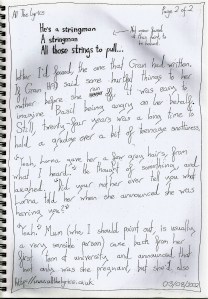 All The Lyrics
Page 2 of 2
He's a stringman
A stringman
All those strings to pull...
letter I'd found, the one that Gran had written,
if Gran had said some hurtful things to her
mother before she ran off. It was easy to
imagine Basil being angry on her behalf.
Still, twenty four years was a long time to
hold a grudge over a bit of teenage snottiness.
"Yeah, Lorna gave her a few grey hairs, from
what I heard." He thought of something, and
laughed. "Did your mother ever tell you what
Lorna told her when she announced she was
having you?"
"Yeah." Mum (who, I should point out, is usually
a very sensible person) came back from her
first term at university, and announced that
not only was she pregnant, but she'd also
03/03/2002